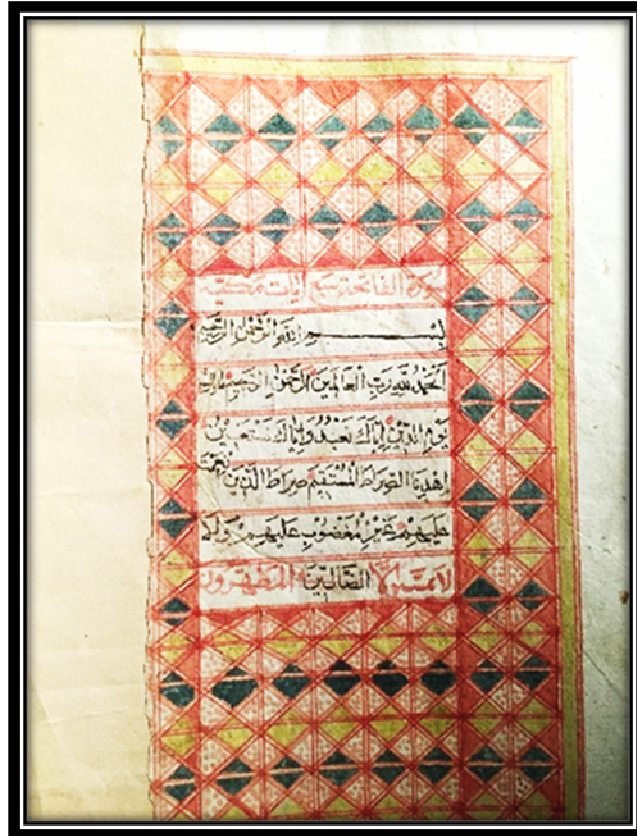 سورة الفاتحة سبع آيات مكية
بسم الله الرحمن الرحيم
اَلْحَمْدُ لِلّٰهِ رَبِّ الْعَالَمِينَ الرَّحْمٰنِ الرَّحِيمِ مٰلِكِ
يَوْمِ الدِّينِ اِيَّاكَ نَعْبُدُ وَاِيَّاكَ نَسْتَعِينُ
اِهْدِنَا الصِّرَاطَ الْمُسْتَقِيمَ صِرَاطَ الَّذِينَ
عَلَيْهِمْ غَيْرِ الْمَغْضُوبِ عَلَيْهِمْ وَلَا
لا يمسه إلا الضَّالِّينَ المطهرون